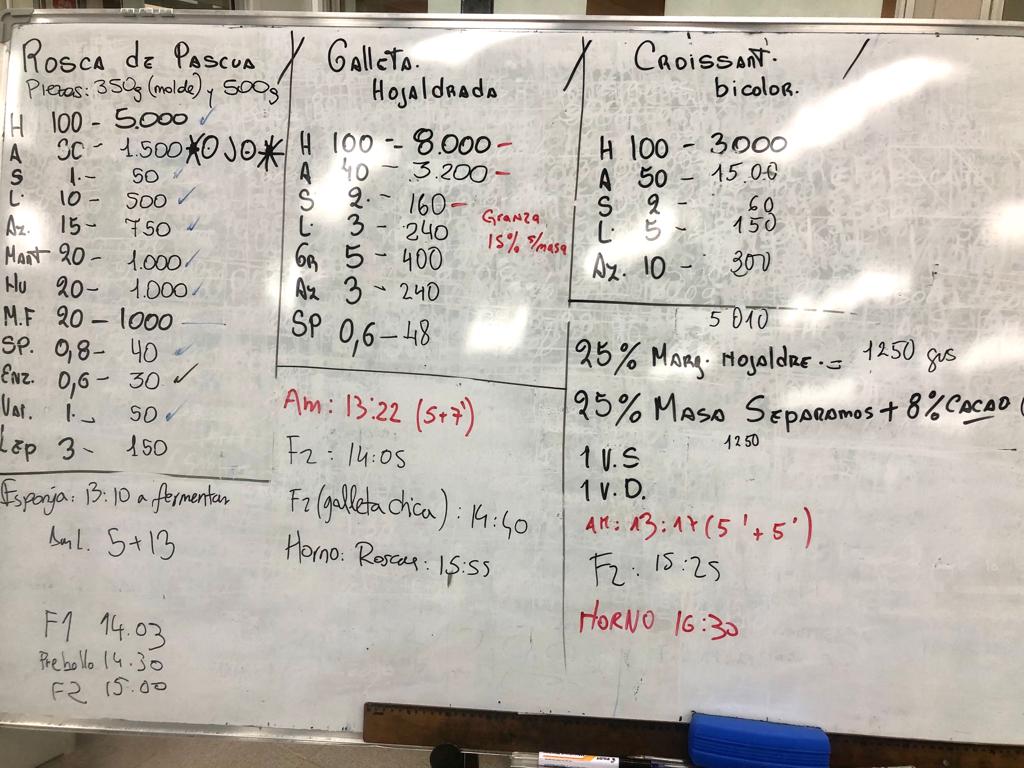 Rosca de Pascua
Piezas: 350g (molde) y 500g
H 100 - 5.000
A 30 - 1.500 *OJO*
S 1.- 50
L. 10 - 500
Az. 15 - 750
Mant 20 - 1.000
Hu 20 - 1.000
M.F 20 - 1000
SP. 0,8 - 40
Enz. 0,6 - 30
Vai. 1.- 50
Lep 3 - 150
Esponja: 13:10 a fermentar
Aml. 5+13
F1 14.03
Prebollo 14.30
F2 15.00
Galleta.
Hojaldrada
H 100 - 8.000 -
A 40 - 3.200 -
S 2. - 160 -
L. 3 - 240
Gr 5 - 400
Az 3 - 240
SP 0,6 - 48
Granza
15% s/masa
Am: 13:22 (5+7')
F2: 14:05
F2 (galleta chica): 14:40
Horno: Roscas: 15:55
Croissant.
bicolor.
H 100 - 3.000
A 50 - 15.00
S 2 - 60
L. 5 - 150
Az. 10 - 300
5010
25% Marg. Hojaldre.= 1250 grs
25% Masa Separamos + 8% Cacao (
1250
1 V.S
1 V.D.
Am: 13:17 (5'+5')
F2: 15:25
Horno 16:30